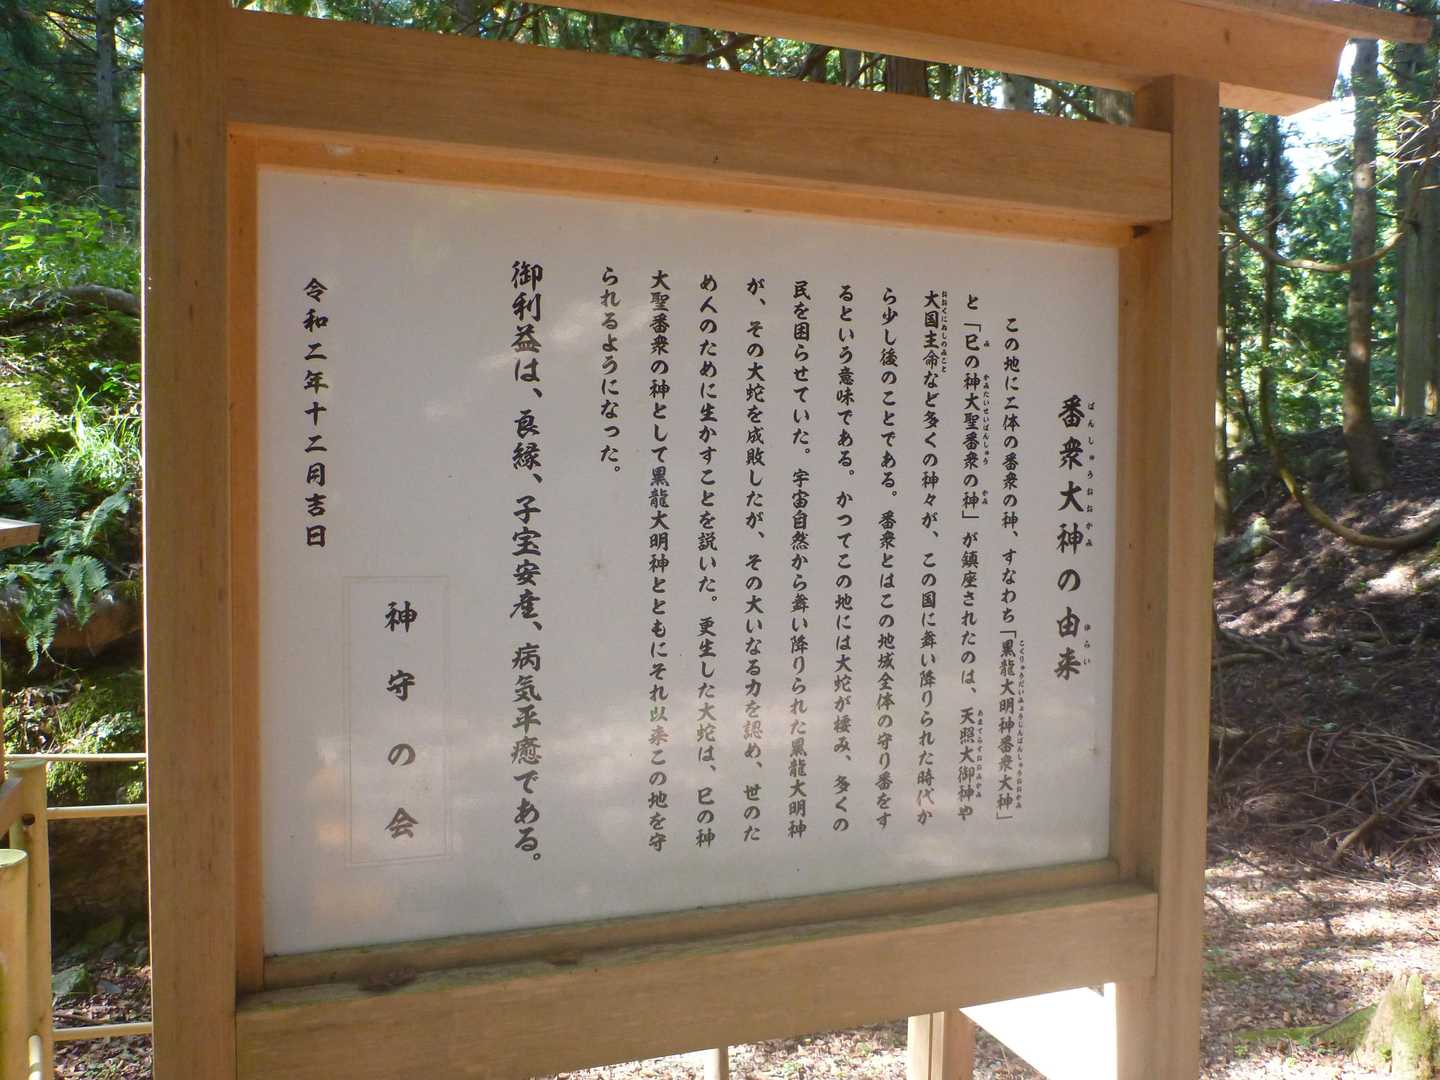 番衆大神の由来
ばんしゅうおおかみ
ゆらい
この地に二体の番衆の神、すなわち「黒龍大明神番衆大神」
こくりゅうだいみょうじんばんしゅうおおかみ
と「巳の神大聖番衆の神」が鎮座されたのは、天照大御神や
み
かみたいせいばんしゅう
かみ
あまてらすおおみかみ
大国主命など多くの神々が、この国に舞い降りられた時代か
おおくにぬしのみこと
ら少し後のことである。番衆とはこの地域全体の守り番をす
るという意味である。かつてこの地には大蛇が棲み、多くの
民を困らせていた。宇宙自然から舞い降りられた黒龍大明神
が、その大蛇を成敗したが、その大いなる力を認め、世のた
め人のために生かすことを説いた。更生した大蛇は、巳の神
大聖番衆の神として黒龍大明神とともにそれ以来この地を守
られるようになった。
御利益は、良縁、子宝安産、病気平癒である。
神守の会
令和二年十二月吉日